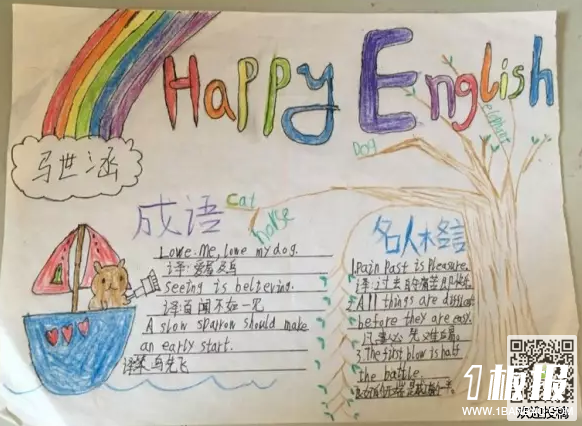 Happy English
马世涵
Dog
elephant
成语
cat
horse
名人格言
Love. Me, love my dog.
译:爱屋及乌
Seeing is believing.
译:百闻不如一见
A slow sparrow should make
an early start.
译:笨鸟先飞
1.Pain Past is Pleasure.
译:过去的痛苦即快乐.
2.All things are difficult
before they are easy.
凡事必先难后易。
3.The first blow is half
the battle.
1板报
WWW.1BANBAO.COM
欢迎投稿